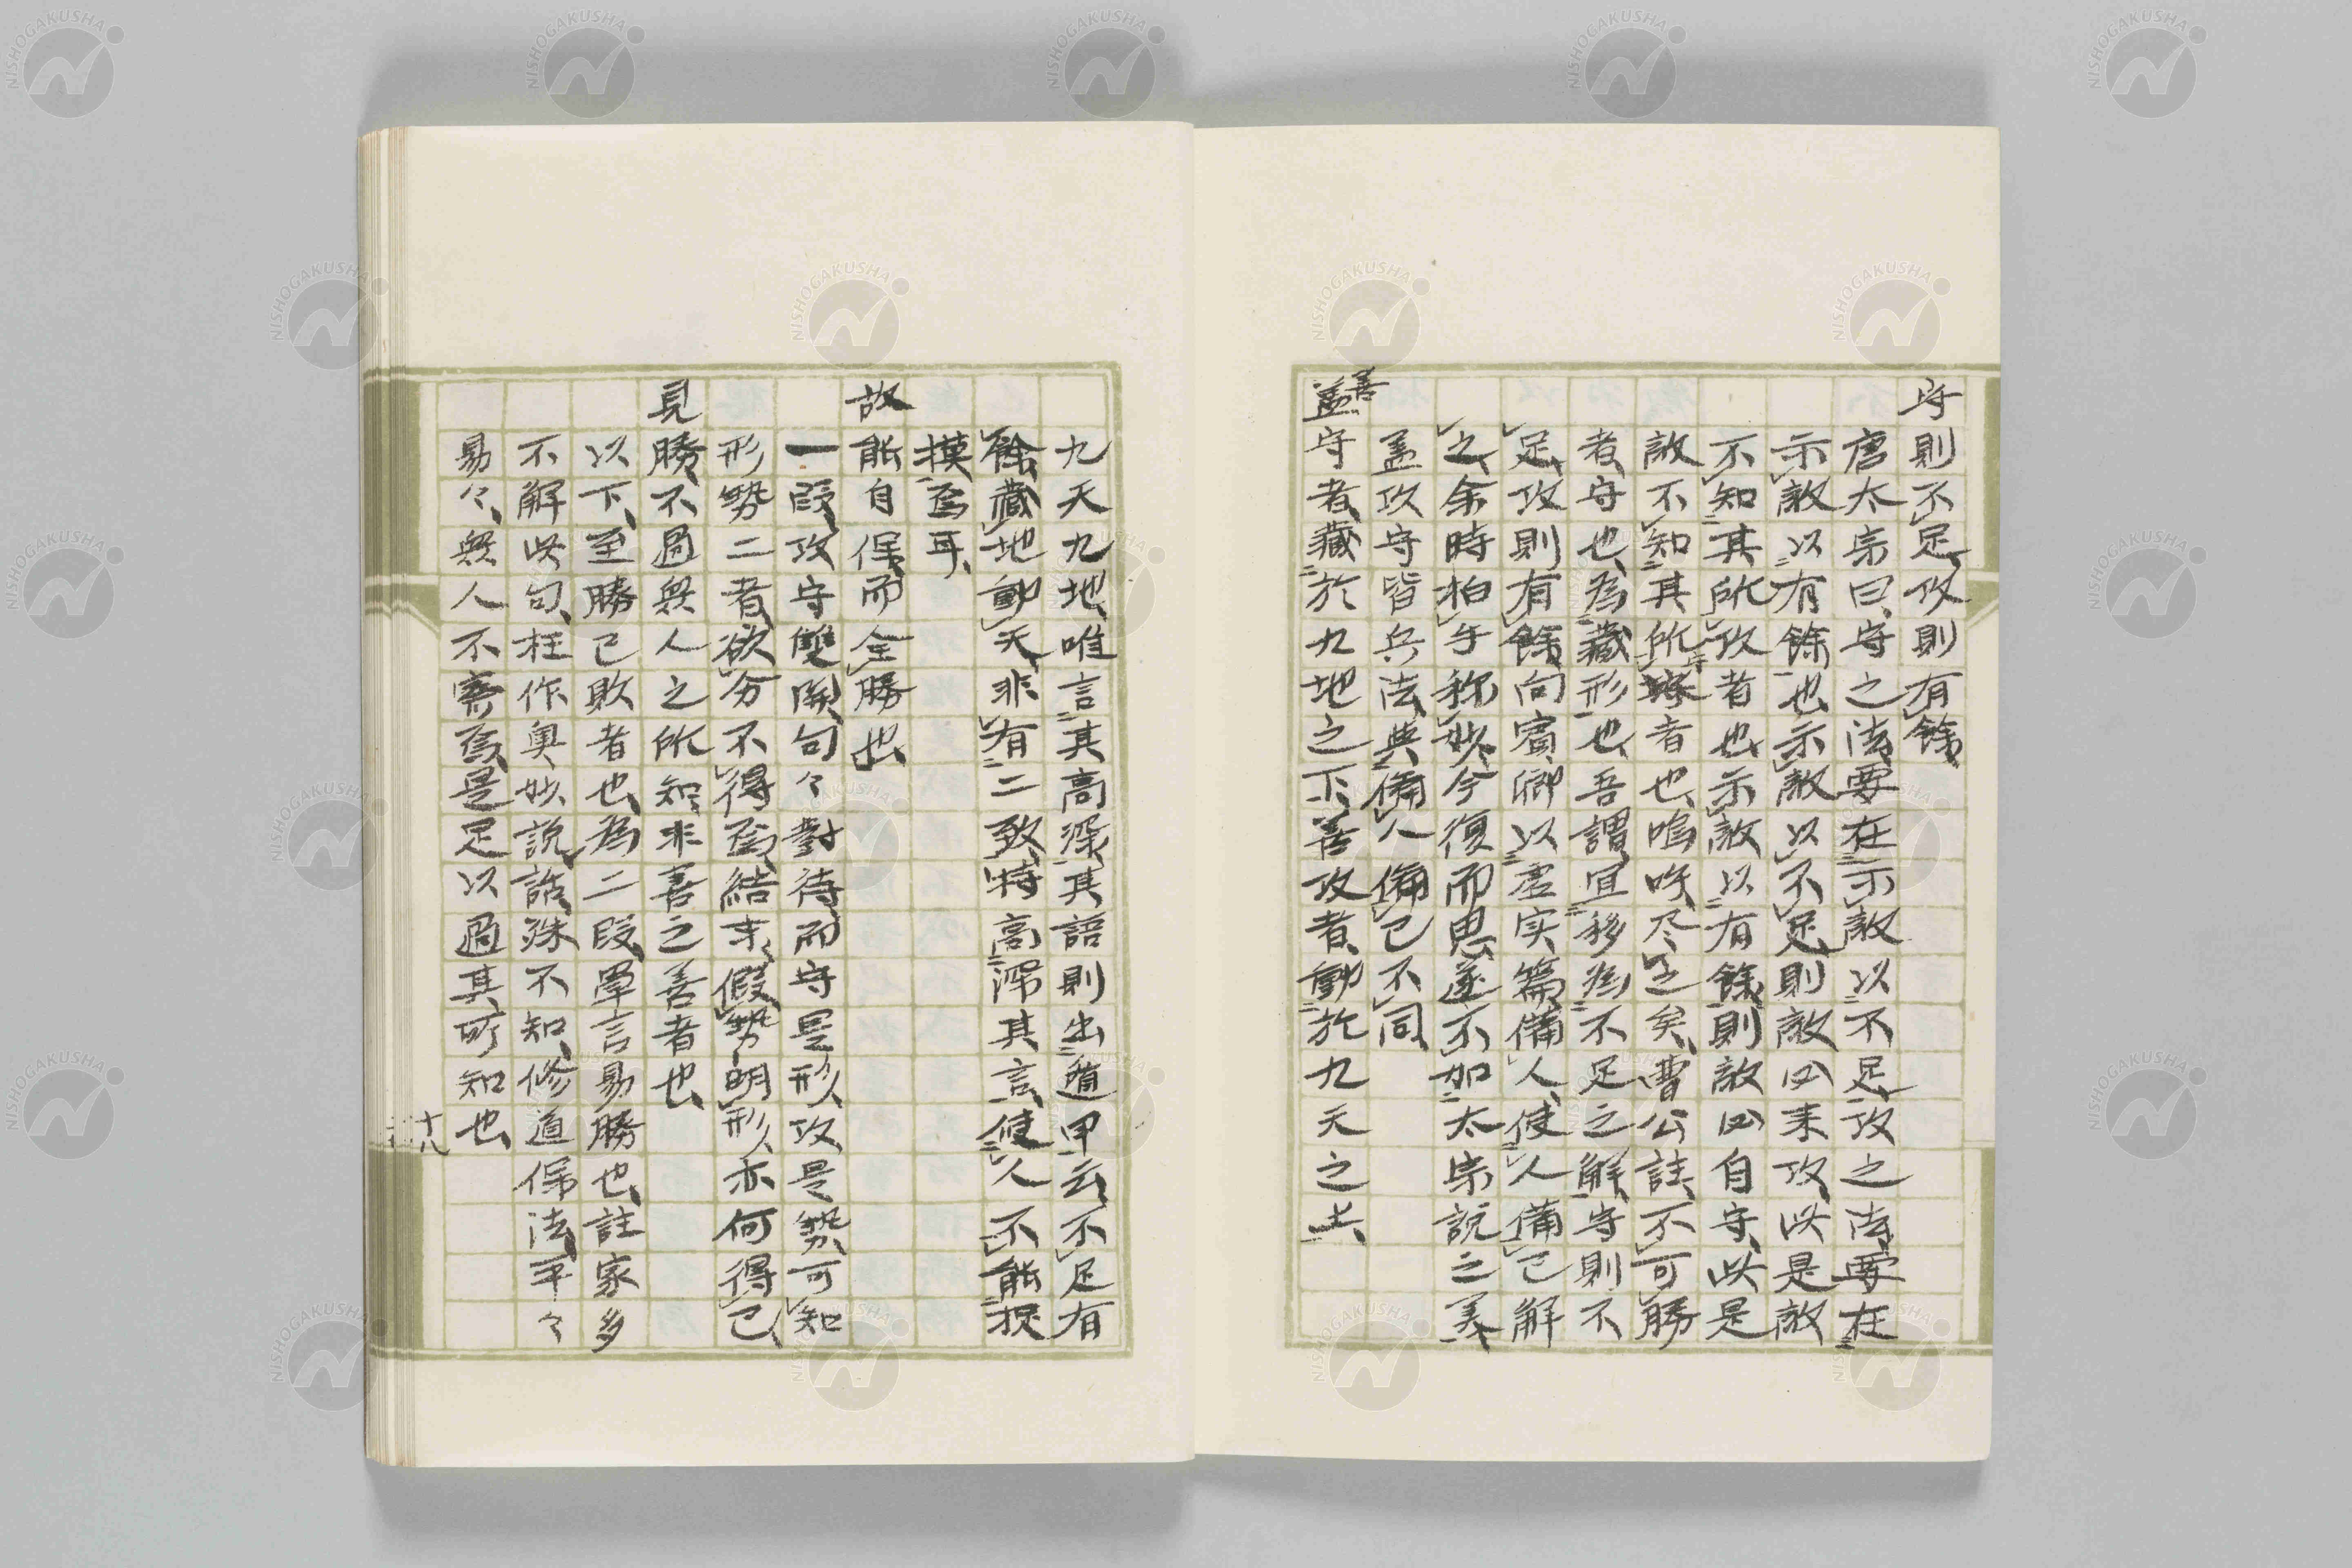 守則不足、攻則有餘、
唐太宗曰、守之法、要在示敵以不足、攻之法、要在
示敵以有餘也、示敵以不足、則敵必来攻、此是敵
不知其所攻者也、示敵以有餘、則敵必自守、此是
敵不知其所守者也、嗚呼尽之矣、曹公註、不可勝
者、守也、為藏形也、吾謂宜移為不足之解、守則不
足、攻則有餘、向賓卿以虚実篇備人、使人備己解
之、余時拍手称妙、今復而思、遂不加太宗説之美、
盖攻守皆兵法、與備人備己不同、
善守者、藏於九地之下、善攻者、動於九天之上、
九天九地、唯言其高深、其語則出遁甲云、不足有
餘、藏地動天、非有二致、特高深其言、使人不能捉
摸焉耳、
故能自保而全勝也、
一段、攻守雙関、句々對待、而守是形、攻是勢、可知
形勢二者、欲分不得焉、結末、假勢明形、亦何得已、
見勝、不過無人之所知、非善之善者也、
以下、至勝已敗者也、為二段、單言易勝也、註家多
不解此句、枉作奥妙説話、殊不知、修道保法、平々
易々、無人不窺焉、是足以過其所知也、
十八
NISHOGAKUSHA